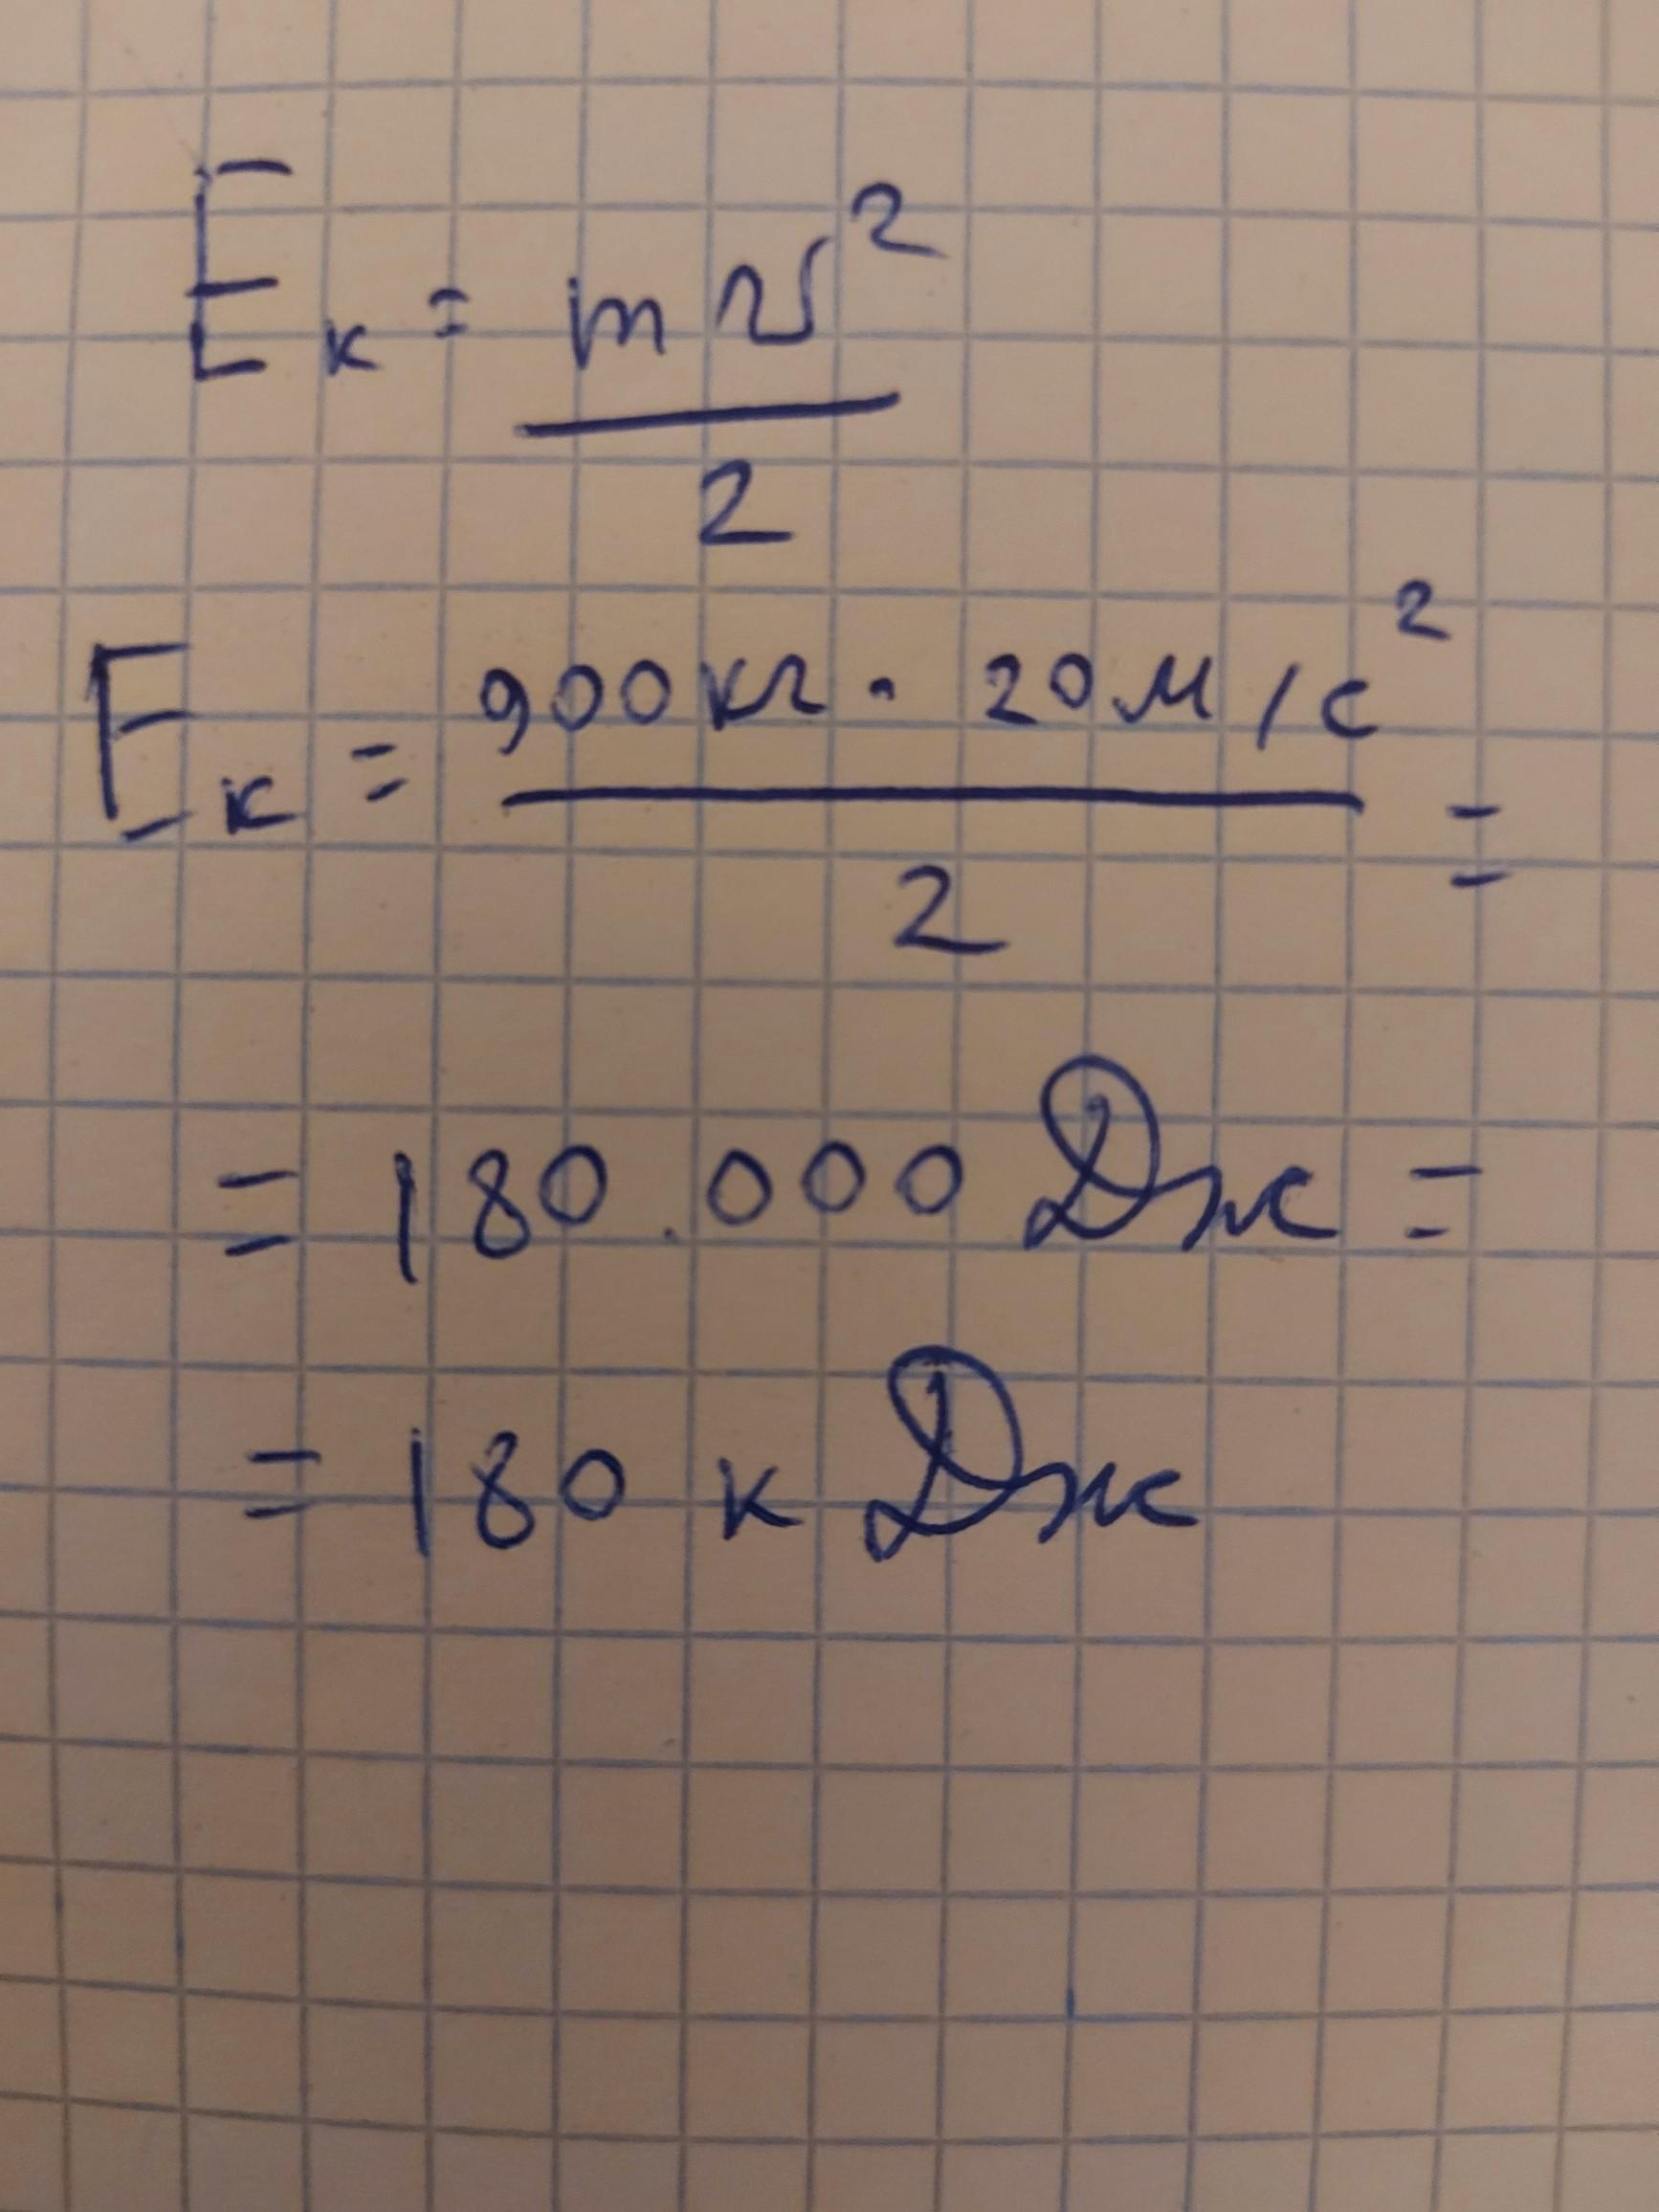 Eк = mv²/2
Eк = 900кг · 20м/с²/2 =
= 180.000 Дж =
= 180 кДж